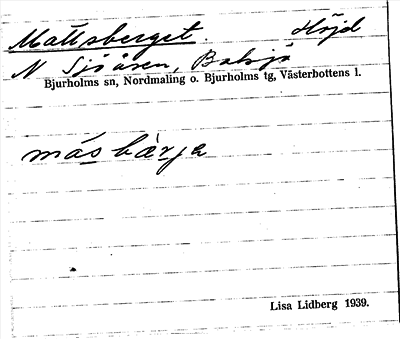 Mattsberget. Höjd
N Sjöåsen, Balsjö
Bjurholms sn, Nordmaling o. Bjurholms tg, Västerbottens l.
másbárja
Lisa Lidberg 1939.